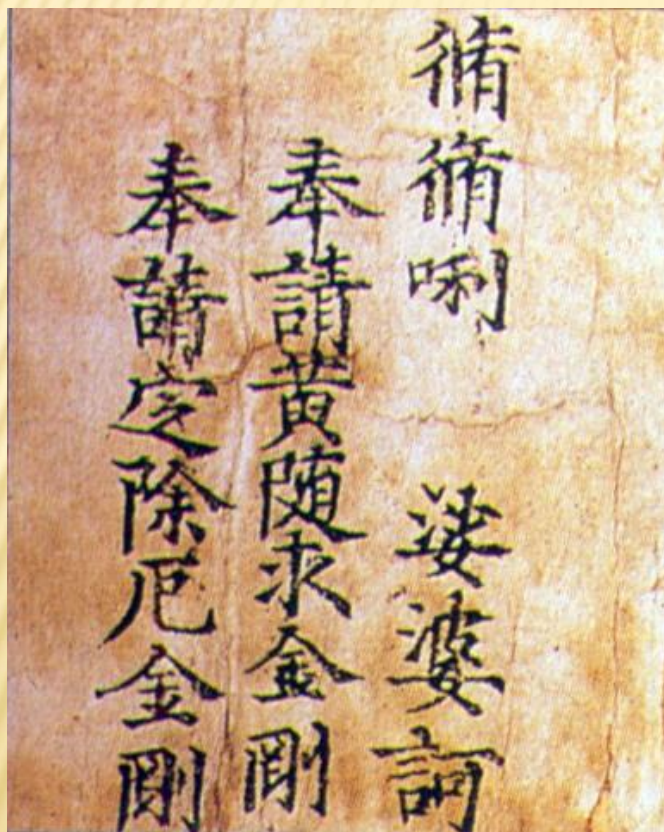 脩脩唎 娑婆訶
奉請黄随求金剛
奉請定除厄金剛